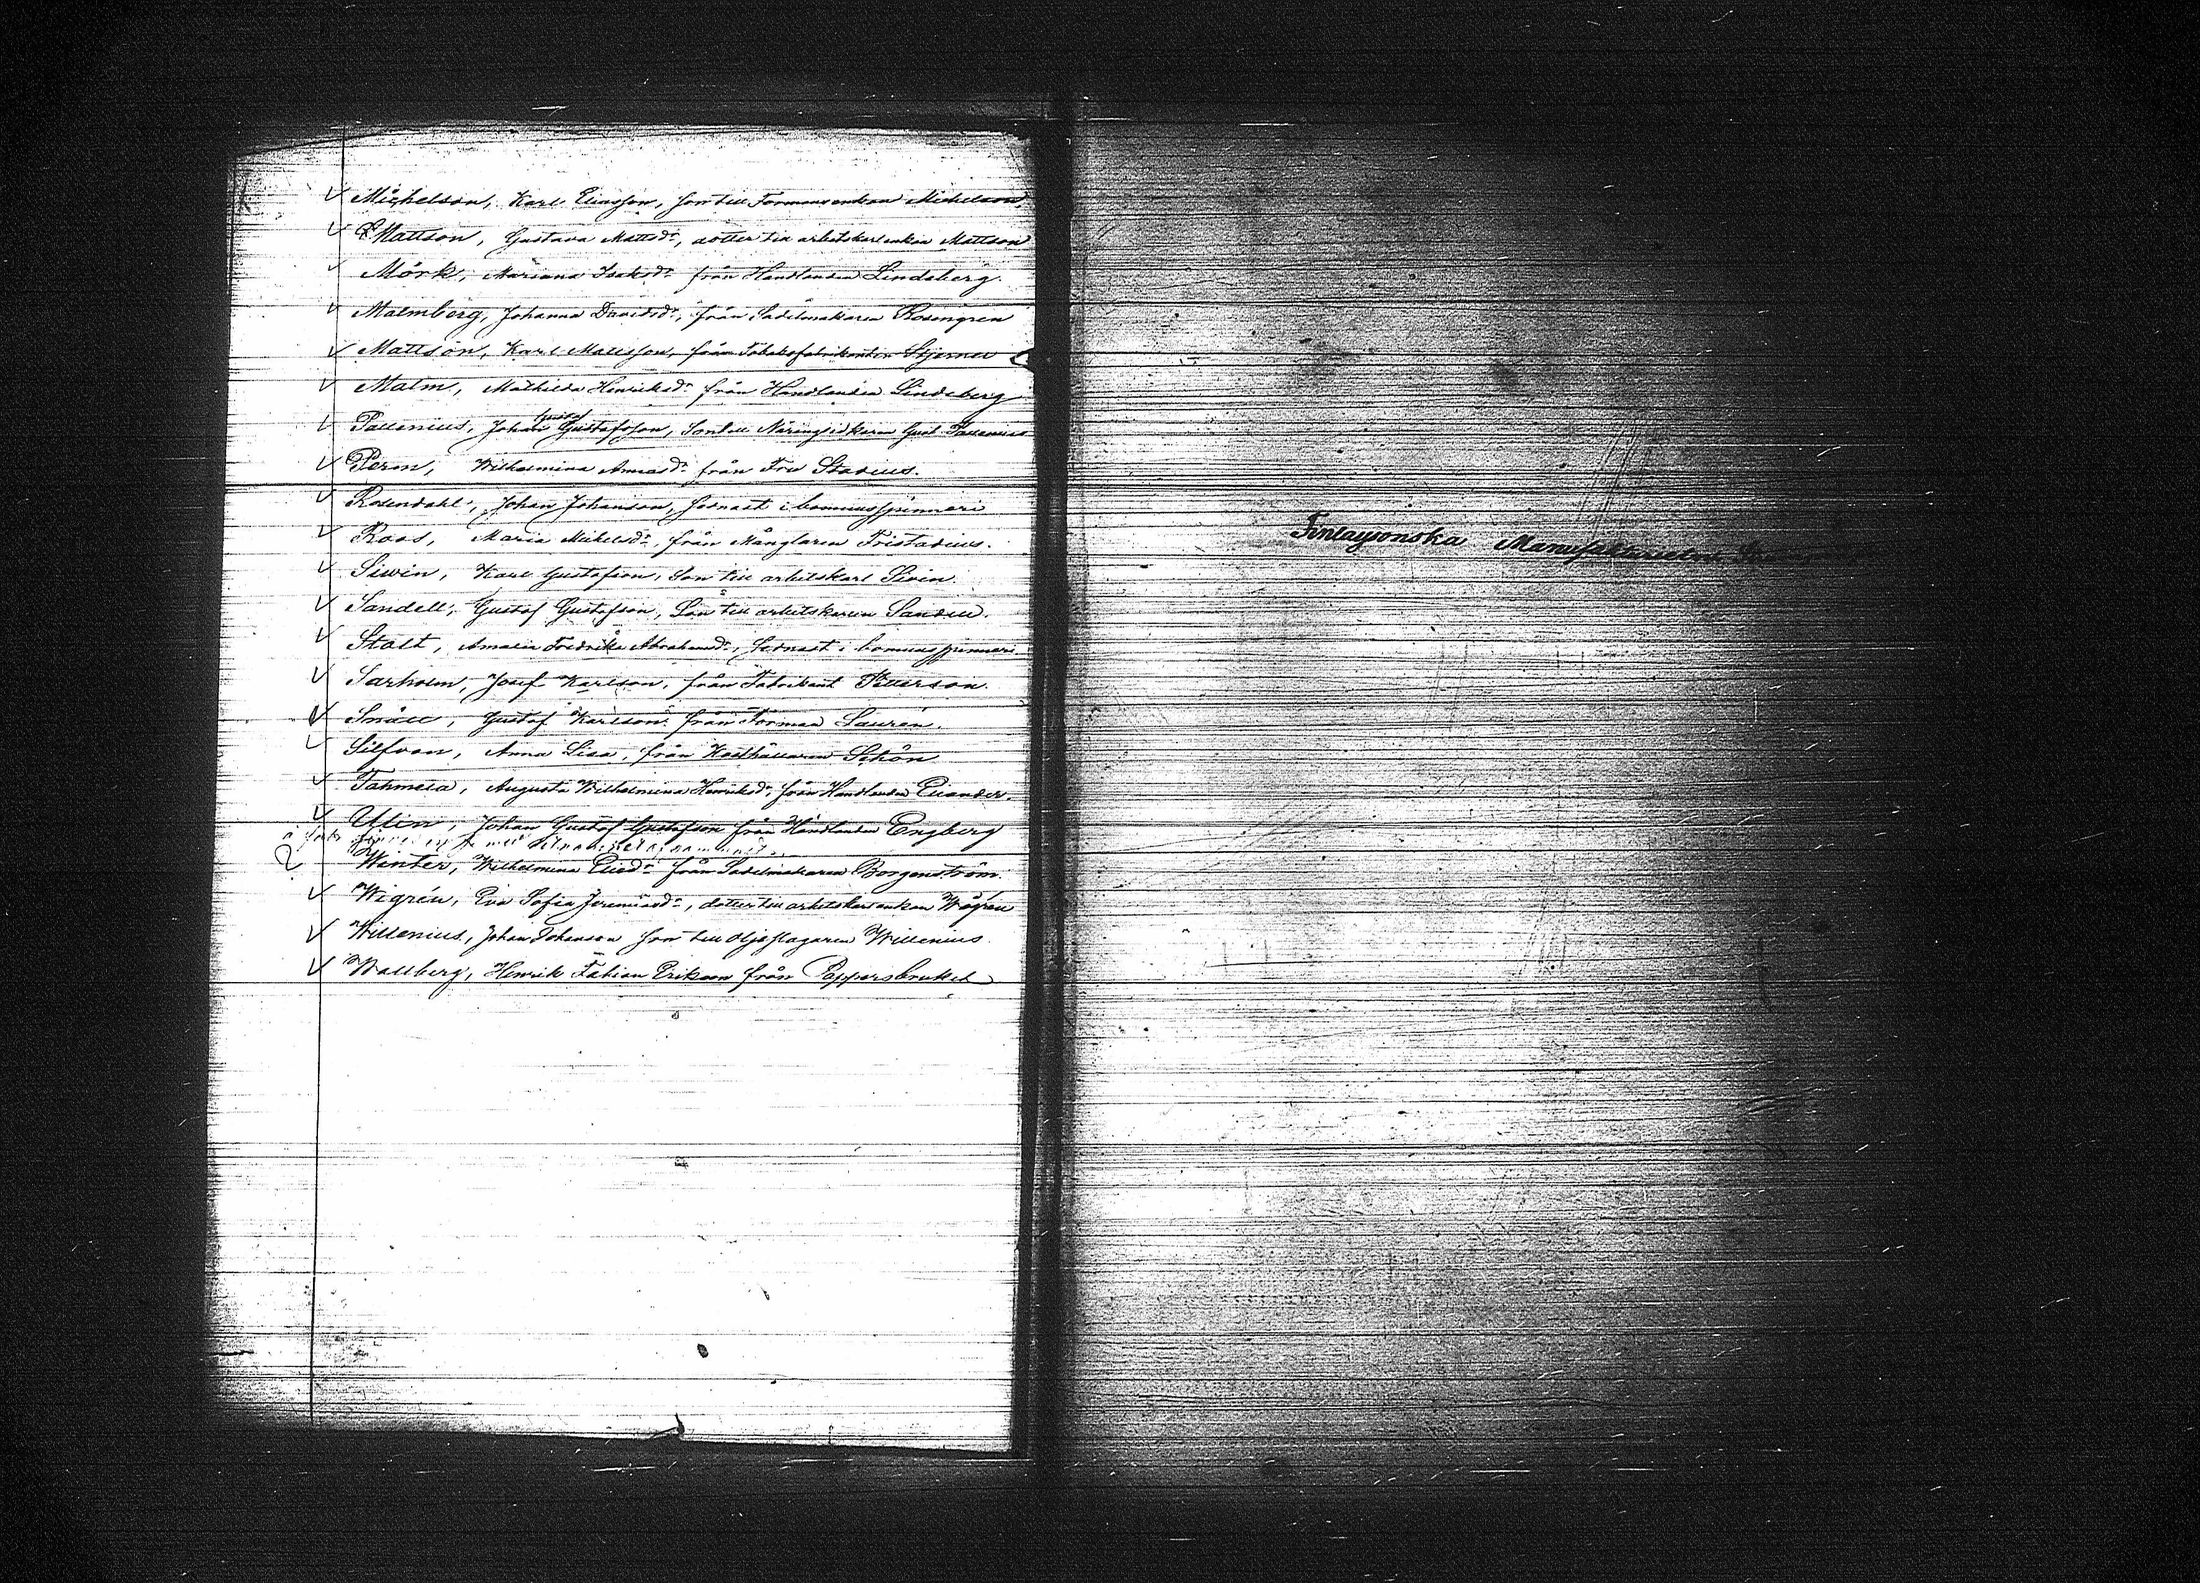 Michelson, Karl Eliasson, son till Formansenkan Michelson
Mattson, Gustava Mattsdr, dotter till arbetskarlenkan Mattson
Mörk, Mariana Isaksdr från Handlanden Lindeberg.
Malmberg, Johanna Davidsdr, från Sadelmakaren Rosengren
Mattson, Karl Mattsson, från Tobaksfabrikanten Stjerner
Malm, Mathilda Henriksdr från Handlanden Lindeberg
Pallenius, Johan Gustafsson, Son till Näringsidkaren Gust. Pallenius
Perm, Wilhelmina från Fru Stadius.
Rosendahl, Johan Johanson, sednast i bomullsspinneri
Roos, Maria Mickelsdr, från Månglaren Fristadius.
Siwin, Karl Gustafson, Son till arbetskarl Sivin.
Sandell, Gustaf Gustafson, Son till arbetskarlen Sandell.
Stolt, Amalia Fredrika Abrahamsdr, sednast i bomullsspinneri
Sarholm, Josef Karlson, från Fabrikant Petterson.
Småll, Gustaf Karlson från Forman Laurén.
Silfvan, Anna Lisa, från Kosthållaren Schön
Tahmela, Augusta Wilhelmina Henriksdr, från Handlanden Elander.
Ulin, Johan Gustaf Gustafson från Handlanden Engberg
Winter, Wilhelmina Eliedr från Sadelmakaren Borgenström.
Wigrén, Eva Sofia Jeremiasdr, dotter till arbetskarlenkan Wigren
Willenius, Johan Johanson son till Oljeslagaren Willenius.
Wallberg, Henrik Fabian Erikson från Pappersbruket
Finlaysonska